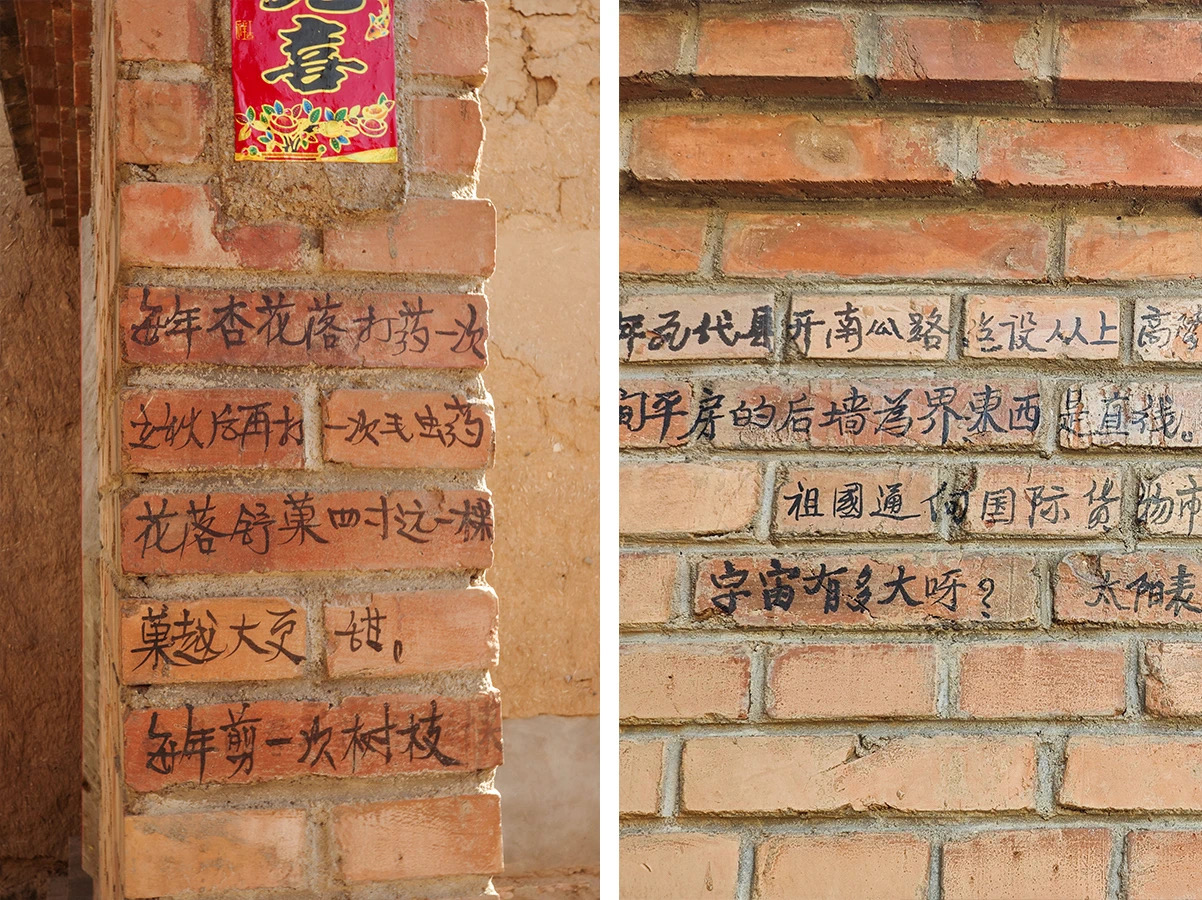 喜
每年杏花落打药一次
立秋后再打一次毛虫药
花落舒菓四寸远一棵
菓越大更甜。
每年剪一次树枝
代县开南瓜路 设从上高
平房的后墙為界東西是直线。
祖國通向国际货物市
宇宙有多大呀？太阳表